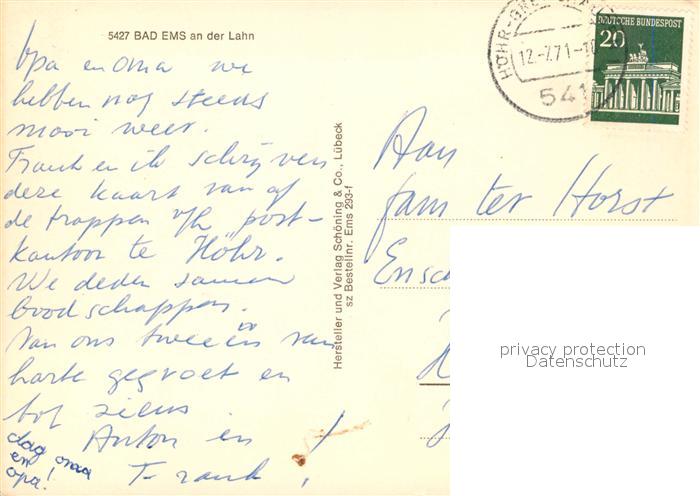 5427 BAD EMS an der Lahn
Opa en Oma we
hebben nog steeds
mooi weer.
Frank en ik schrijven
deze kaart van af
de trappen v/h post-
kantoor te Höhr.
We deden samen
boodschappen.
Van ons tweeën van
harte gegroet en
tot ziens.
Anton en
Frank!
dag oma
en
opa!
Hersteller und Verlag Schöning & Co., Lübeck
sz Bestellnr. Ems 293-f
12.-7.71-18
541
DEUTSCHE BUNDESPOST
20
Aan
fam ter Horst
Ensc
privacy protection
Datenschutz